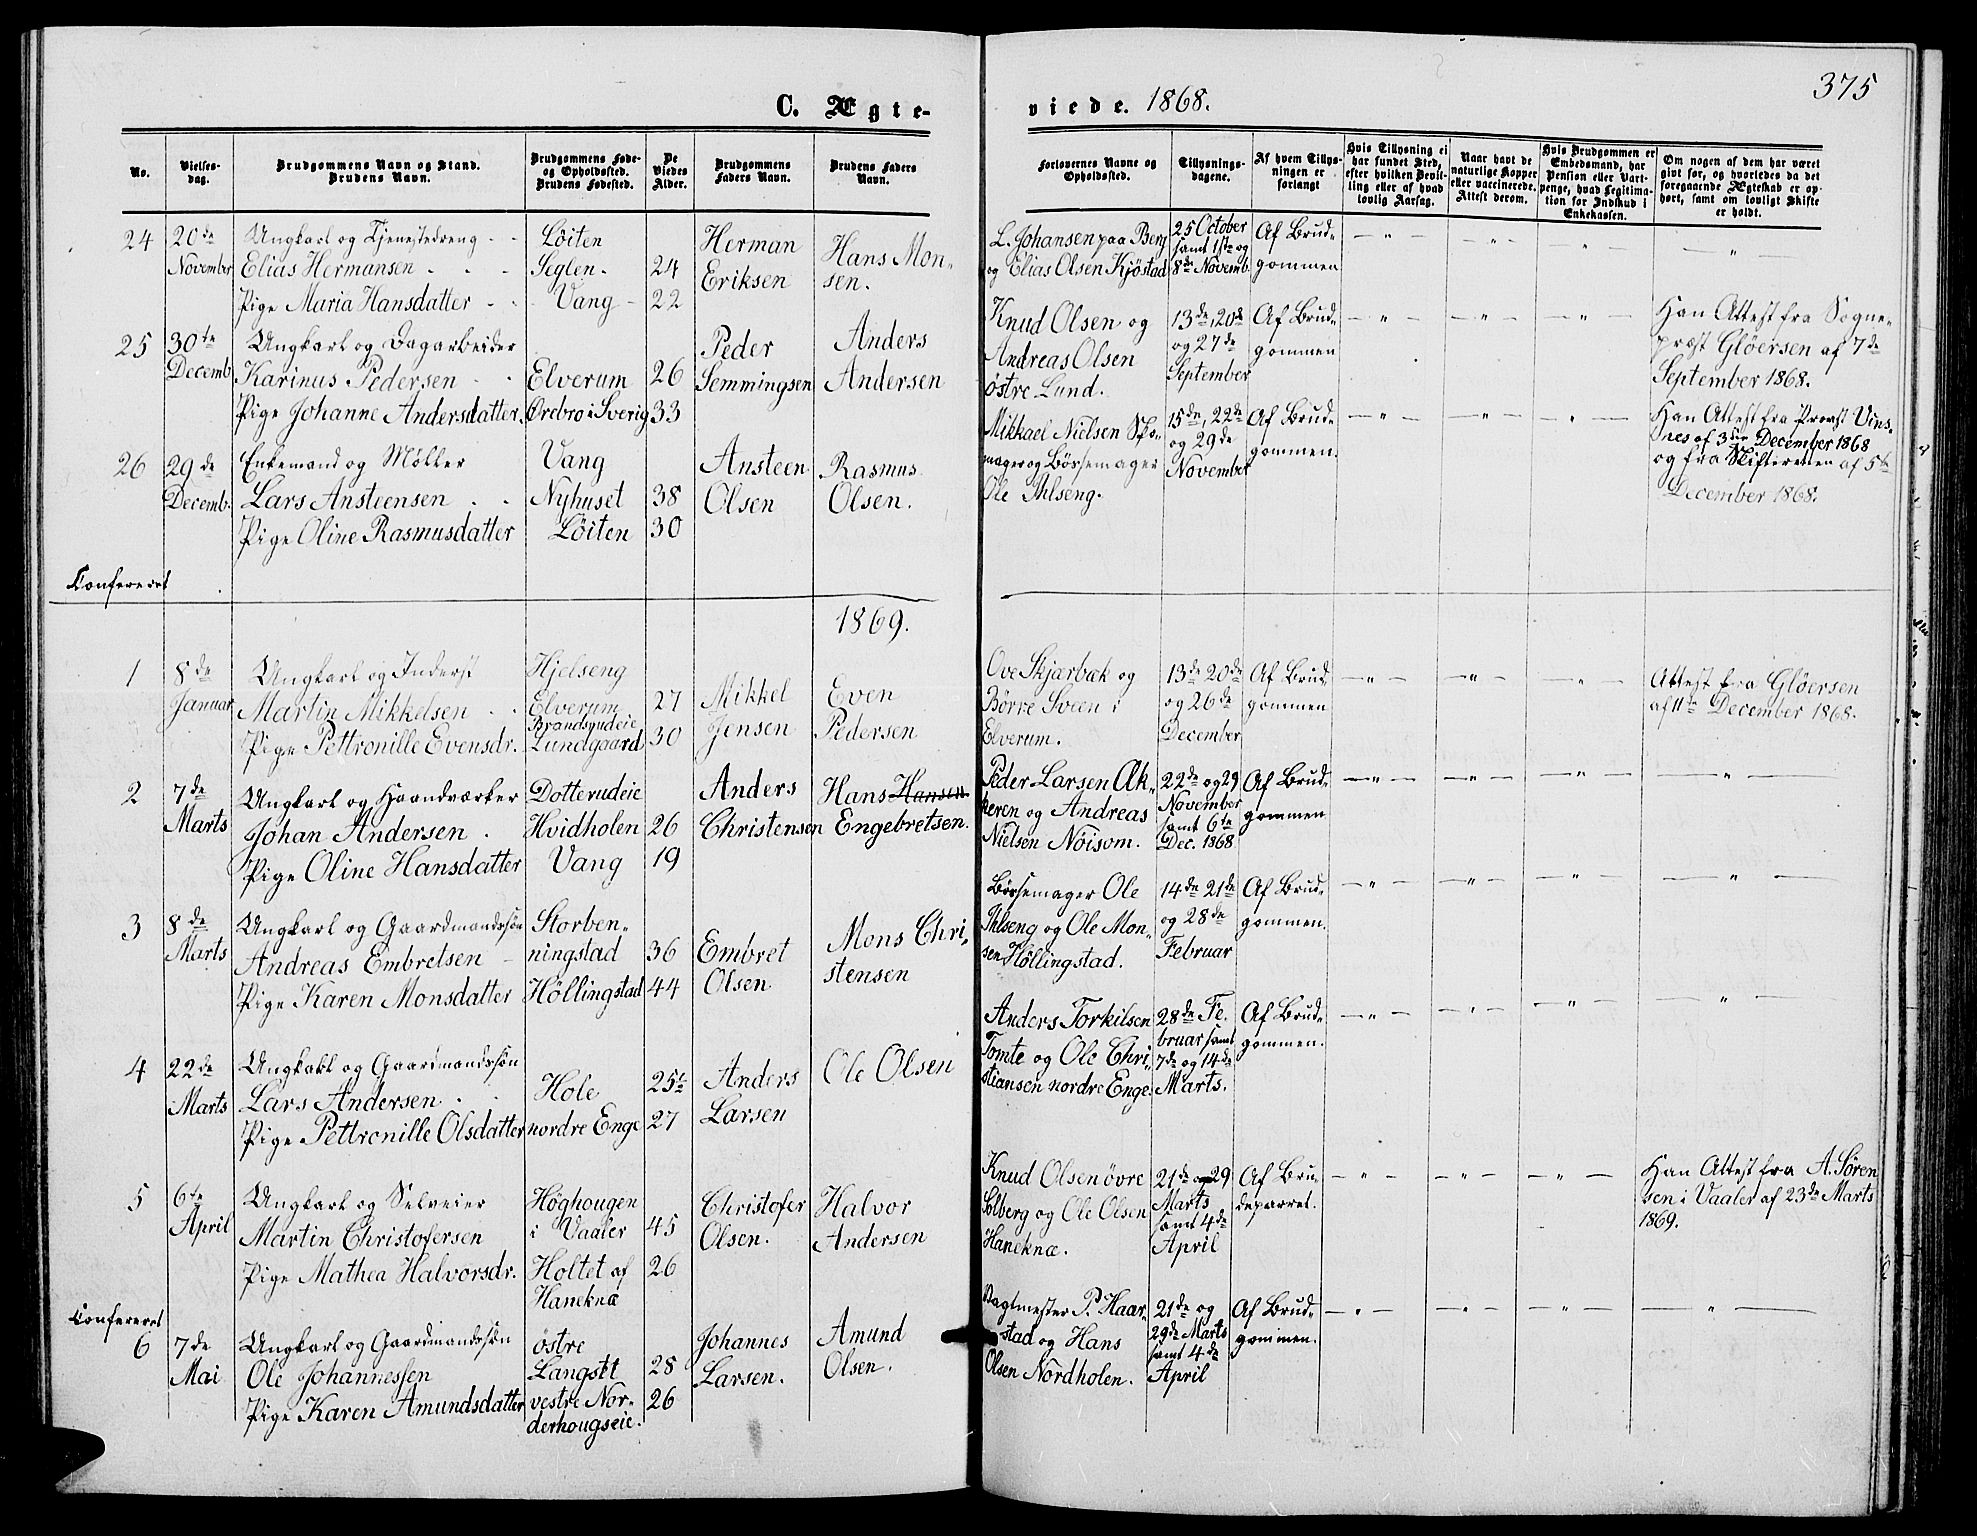 375
C. Ægte-
viede. 1868.
No.
Vielses-
dag.
Brudgommens Navn og Stand.
Brudens Navn.
Brudgommens Føde-
og Opholdssted.
Brudens Fødested.
De
Viedes
Alder.
Brudgommens
Faders Navn.
Brudens Faders
Navn.
Forlovernes Navne og
Opholdssted.
Tillysnings-
dagene.
Af hvem Tillys-
ningen er
forlangt
Hvis Tillysning ei
har fundet Sted,
efter hvilken Bevil-
ling eller af hvad
lovlig Aarsag.
Naar havt de
naturlige Kopper
eller vaccinerede.
Attest derom.
Hvis Brudgommen er
Embedsmand, har
Pension eller Vart-
penge, hvad Legitima-
tion for Indskud i
Enkekassen.
Om nogen af dem har været
gift før, og hvorledes da det
foregaaende Ægteskab er op-
hørt, samt om lovligt Skifte
er holdt.
24
20de
November
Ungkarl og Tjenestedreng
Elias Hermansen
Pige Maria Hansdatter
Løiten
Seglen.
Vang
24
22
Herman
Eriksen
Hans Mon-
sen.
L. Johansen paa Berg
og Elias Olsen Kjøstad
25 October
samt 1ste og
8de Novemb.
Af Brud-
gommen
25
30te
Decemb.
Ungkarl og Dagarbeider
Karinus Pedersen
Pige Johanne Andersdatter.
Elverum
Ørebro i Sverig
26
33
Peder
Semmingsen
Anders
Andersen
Knud Olsen og
Andreas Olsen
østre Lund.
13de, 20de
og 27de
September
Af Brud-
gommen
Han Attest fra Sogne-
præst Gløersen af 7de
September 1868.
26
29de
Decemb.
Enkemand og Møller
Lars Ansteensen
Pige Oline Rasmusdatter
Vang
Nyhuset
Løiten
38
30
Ansteen
Olsen
Rasmus
Olsen.
Mikkael Nielsen Sko-
mager og Børsemager
Ole Ihlseng.
15de, 22de
og 29de
November
Af Brud-
gommen.
Han Attest fra Provst Vins-
nes af 3die December 1868
og fra Skifteretten af 5te
December 1868.
Confereret
1869.
1
8de
Januar
Ungkarl og Inderst
Martin Mikkelsen
Pige Pettronille Evensdr.
Hjelseng
Elverum
Brandsrudeie
Lundgaard
27
30
Mikkel
Jensen
Even
Pedersen
Ove Skjærbæk og
Børre Sveen i
Elverum.
13de 20de
og 26de
December
Af Brud-
gommen
Attest fra Gløersen
af 11te December 1868.
2
7de
Marts
Ungkarl og Haandværker
Johan Andersen
Pige Oline Hansdatter
Dotterudeie
Hvidholen
Vang
26
19
Anders
Christensen
Hans Hansen
Engebretsen.
Peder Larsen Ak-
keren og Andreas
Nielsen Nøisom.
22de og 29
November
samt 6te
Dec. 1868
Af Brud-
gommen
3
8de
Marts
Ungkarl og Gaardmandssøn
Andreas Embretsen
Pige Karen Monsdatter
Storben-
ningstad
Høllingstad
36
44
Embret
Olsen
Mons Chri-
stensen
Børsemager Ole
Ihlseng og Ole Mon-
sen Høllingstad.
14de 21de
og 28de
Februar
Af Brud-
gommen.
4
22de
Marts
Ungkakl og Gaardmandssøn
Lars Andersen
Pige Pettronille Olsdatter
Hole
nordre Enge
25
27
Anders
Larsen
Ole Olsen
Anders Torkilsen
Tomte og Ole Chri-
stiansen nordre Enge.
28de Fe-
bruar samt
7de og 14de
Marts.
Af Brud-
gommen.
5
6te
April
Ungkarl og Selveier
Martin Christofersen
Pige Mathea Halvorsdr.
Høghougen
i Vaaler
Holtet af
Haneknæ
45
26
Christofer
Olsen.
Halvor
Andersen
Knud Olsen øvre
Solberg og Ole Olsen
Haneknæ.
21de og 29
Marts
samt 4de
April
Af Bru-
deparret.
Han Attest fra A. Søren
sen i Vaaler af 23de Marts
1869.
Confereret
6
7de
Mai
Ungkarl og Gaardmandssøn
Ole Johannessen
Pige Karen Amundsdatter
østre
Langset
vestre Nor-
derhougseie.
28
26
Johannes
Larsen.
Amund
Olsen.
Vagtmester P. Haar-
stad og Hans
Olsen Nordholen.
21de og
29de Marts
samt 4de
April
Af Brud-
gommen.